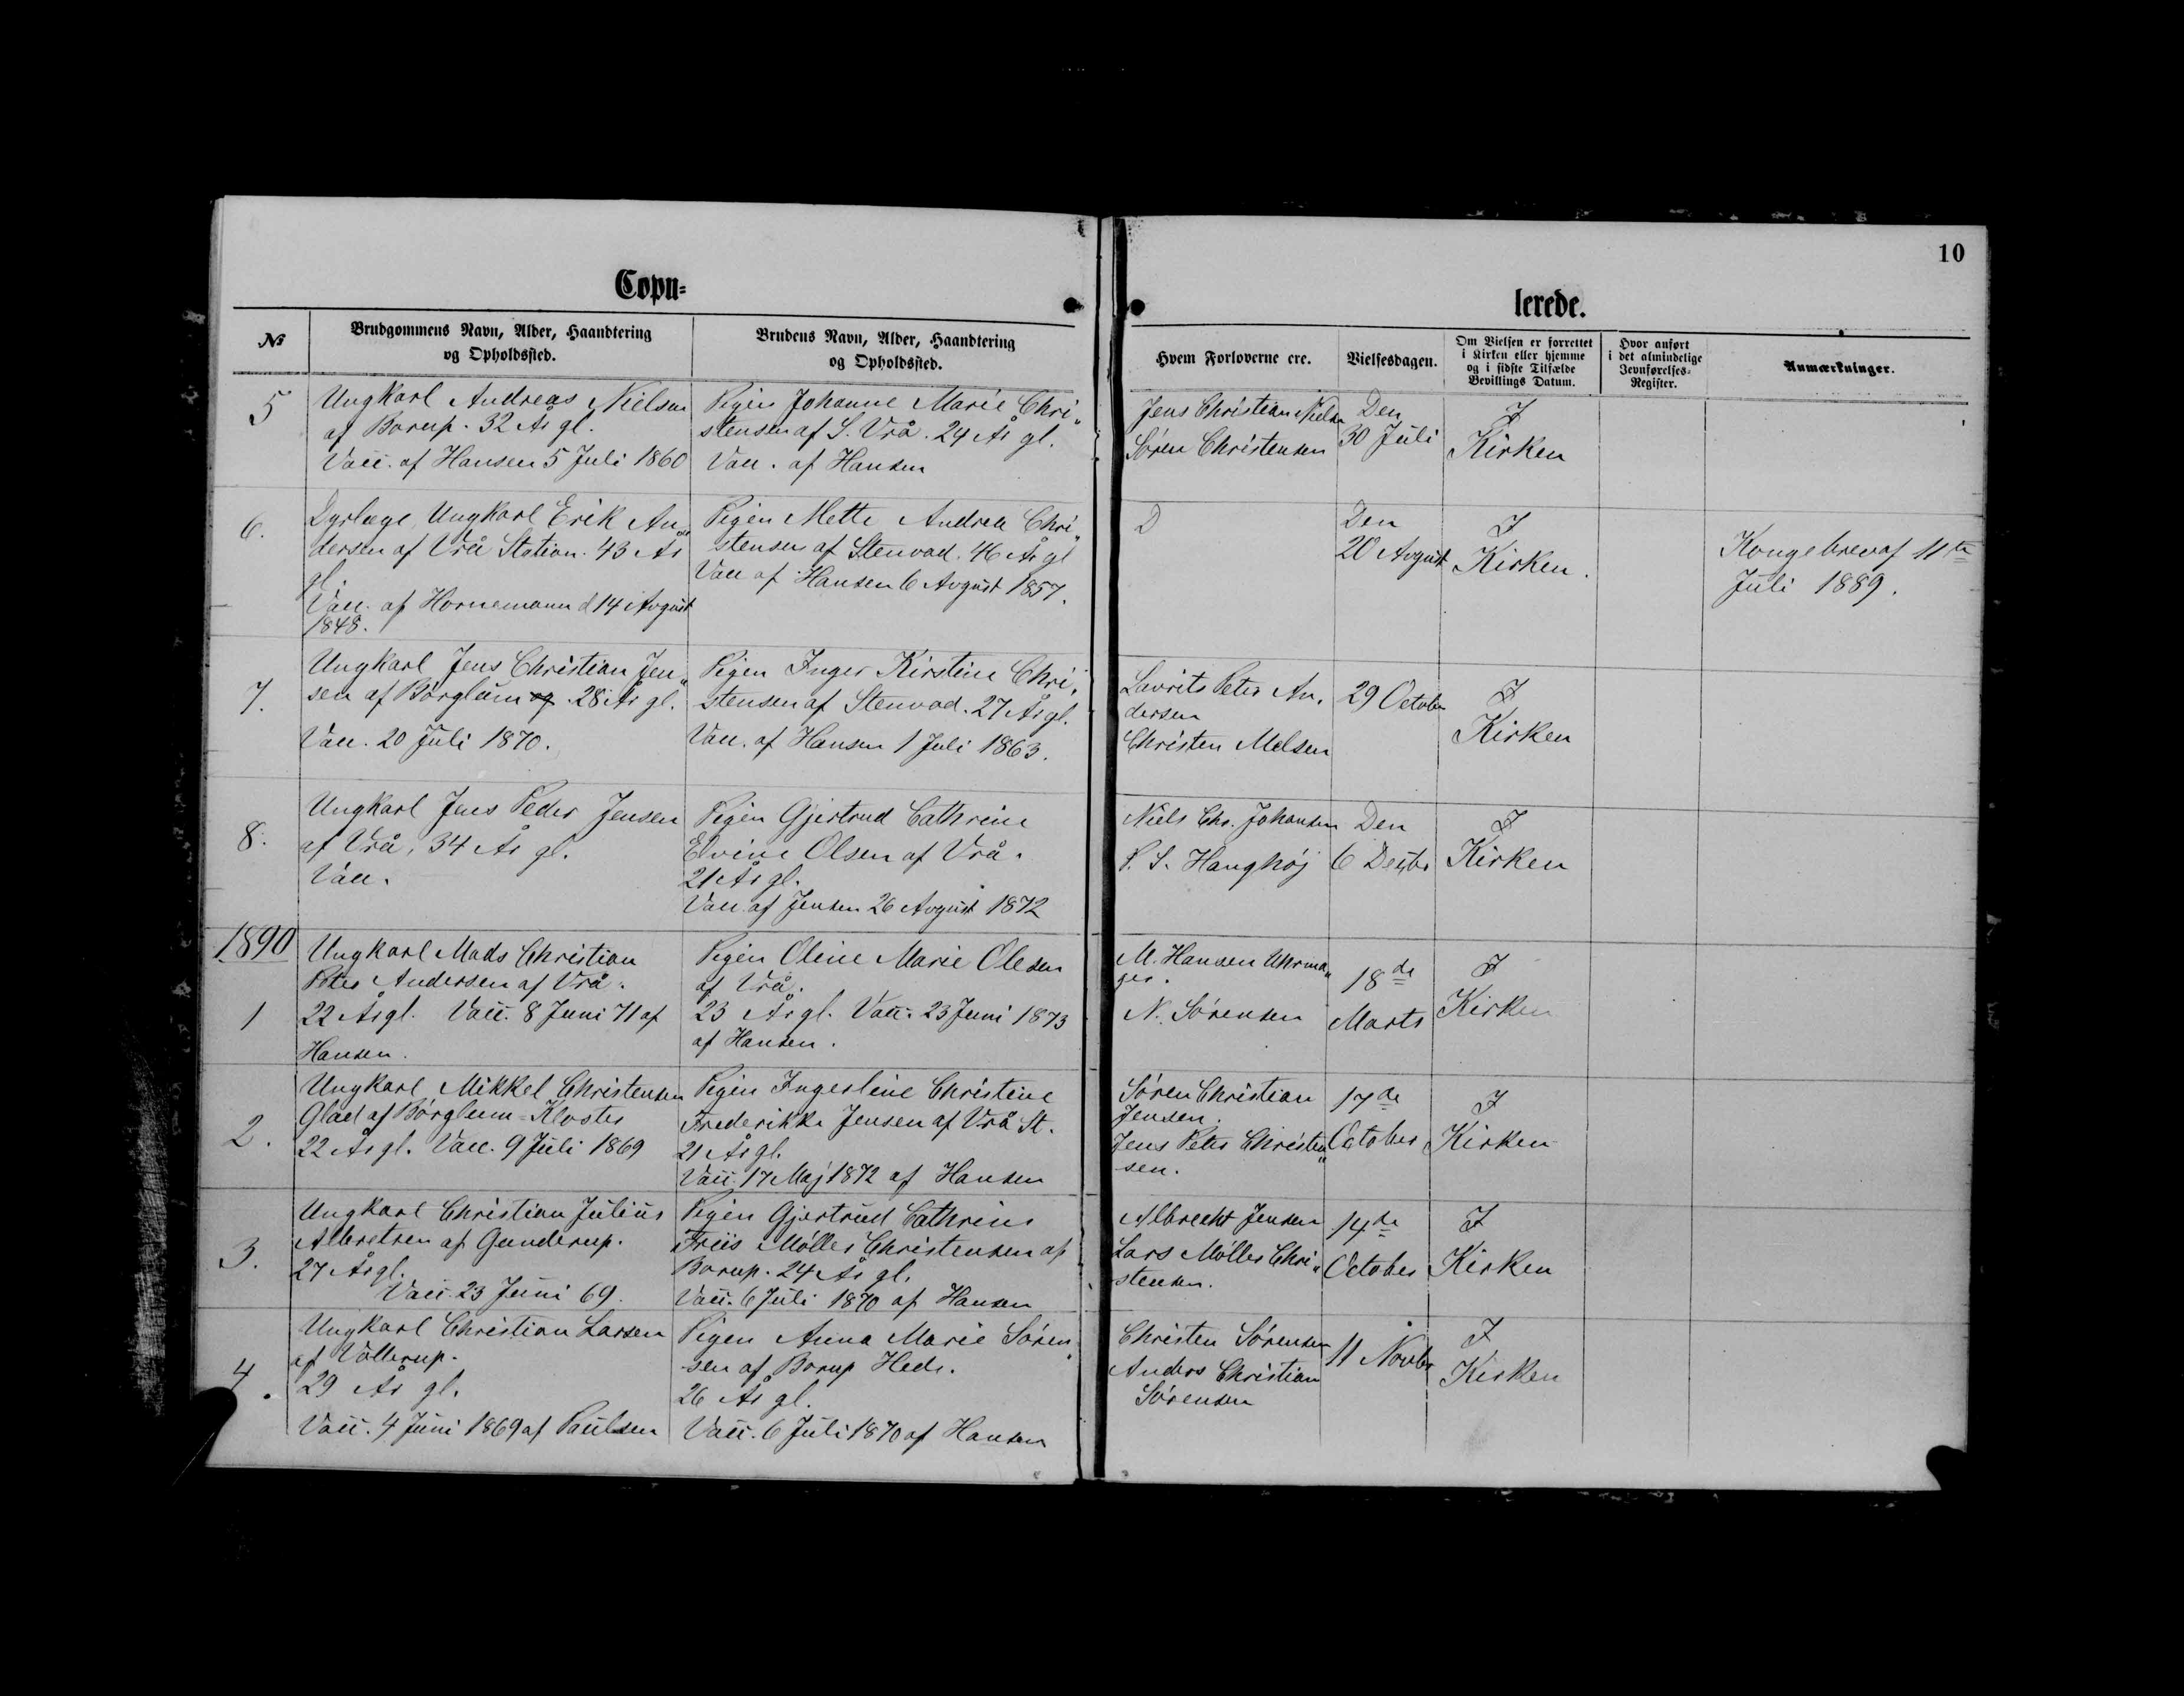 10
Copu-
lerede.
№
Brudgommens Navn, Alder, Haandtering
og Opholdssted.
Brudens Navn, Alder, Haandtering
og Opholdssted.
Hvem Forloverne ere.
Vielsesdagen.
Om Vielsen er forrettet
i Kirken eller hjemme
og i sidste Tilfælde
Bevillings Datum.
Hvor anført
i det almindelige
Jevnførelses-
Register.
Anmærkninger.
5
Ungkarl Andreas Nielsen
af Borup. 32 År gl.
Vacc. af Hansen 5 Juli 1860
Pigen Johanne Marie Chri„
stensen af S. Vrå. 24 År gl.
Vacc. af Hansen
Jens Christian Nielsen
Søren Christensen
Den
30 Juli
I
Kirken
6.
Dyrlæge, Ungkarl Erik An„
dersen af Vrå Station. 43 År
gl.
Vacc. af Hornemann d 14 Avgust
1848.
Pigen Mette Andrea Chri„
stensen af Stenvad. 46 År gl
Vacc af Hansen 6 Avgust 1857.
D
Den
20 Avgust
I
Kirken.
Kongebrev af 11te
Juli 1889.
7.
Ungkarl Jens Christian Jen„
sen af Børglum og. 28 År gl.
Vacc. 20 Juli 1870.
Pigen Inger Kirstine Chri„
stensen af Stenvad. 27 År gl.
Vacc. af Hansen 1 Juli 1863.
Lavrits Peter An„
dersen
Christen Melsen
29 October
I
Kirken
8.
Ungkarl Jens Peder Jensen
af Vrå, 34 År gl.
Vacc.
Pigen Gjertrud Cathrine
Elvine Olsen af Vrå.
21 År gl.
Vacc. af Jensen 26 Avgust 1872
Niels Chr. Johansen
P. S. Hanghøj
Den
6 Decbr
I
Kirken
1890
1
Ungkarl Mads Christian
Peter Andersen af Vrå.
22 År gl. Vacc. 8 Juni 71 af
Hansen.
Pigen Oline Marie Olesen
af Vrå.
23 År gl. Vacc. 23 Juni 1873
af Hansen.
M. Hansen Uhrma„
ger.
N. Sørensen
18de
Marts
I
Kirken
2.
Ungkarl Mikkel Christensen
Glad af Børglum-Kloster
22 År gl. Vacc. 9 Juli 1869
Pigen Ingerline Christine
Frederikke Jensen af Vrå St.
21 År gl.
Vacc. 17 Maj 1872 af Hansen
Søren Christian
Jensen.
Jens Peter Christen„
sen.
17de
October
I
Kirken
3.
Ungkarl Christian Julius
Albretsen af Gunderup.
27 År gl.
Vacc. 23 Juni 69.
Pigen Gjertrud Cathrine
Friis Møller Christensen af
Borup. 24 År gl.
Vacc. 6 Juli 1870 af Hansen
Albrecht Jensen
Lars Møller Chri„
stensen.
14de
October
I
Kirken
4.
Ungkarl Christian Larsen
af Vollerup.
29 År gl.
Vacc. 4 Juni 1869 af Paulsen
Pigen Anna Marie Søren„
sen af Borup Hede.
26 År gl.
Vacc. 6 Juli 1870 af Hansen
Christen Sørensen
Anders Christian
Sørensen
11 Novbr
I
Kirken